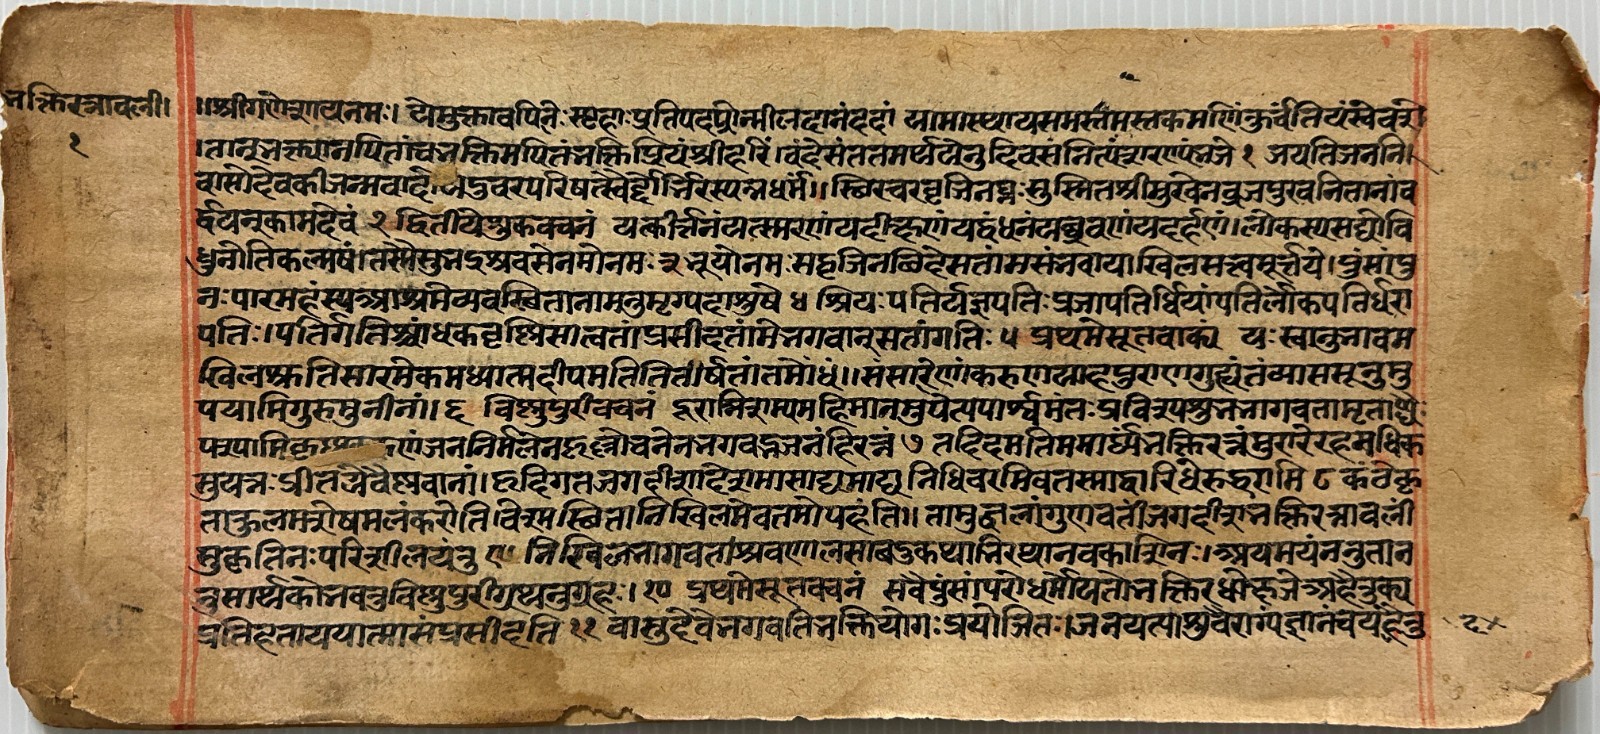 भक्तिरत्नावली।
१
॥श्रीगणेशायनमः। येमुक्तावपिनिःस्पृहाः प्रतिपदप्रोन्मीलदानंददां यामास्थायसमस्तमस्तकमणिंकुर्वंतियंस्वेवशे
।तान्भक्तानपितांचभक्तिमपितंभक्तिप्रियंश्रीहरिं।वंदेसंततमर्थयेनुदिवसंनित्यंशरण्यंभजे १ जयतिजननि।
वासोदेवकीजन्मवादो यदुवरपरिषत्स्वैर्दोर्भिरस्यन्नधर्मं॥स्थिरचरवृजिनघ्नःसुस्मितश्रीमुखेनव्रजपुरवनितानांव
र्द्धयन्कामदेवं २ द्वितीयेशुकवचनं यत्कीर्त्तनंयत्स्मरणंयदीक्षणंयद्वंधनंयच्छ्रवणंयदर्हणं।लोकस्यसद्योवि
धुनोतिकल्मषं।तस्मैसुभद्रश्रवसेनमोनमः ३ भूयोनमःसद्वृजिनछिदेसतांमसंभवायाखिलसत्त्वमूर्त्तये।पुंसांपु
नःपारमहंस्यआश्रमेव्यवस्थितानामनुमृग्यदाशुषे ४ श्रियःपतिर्यज्ञपतिःप्रजापतिर्धियांपतिर्लोकपतिर्धरा
पतिः।पतिर्गतिश्चांधकवृष्णिसात्वतां।प्रसीदतांमेभगवान्सतांगतिः ५ प्रथमेसूतवाक्य यःस्वानुभावम
खिलश्रुतिसारमेकमध्यात्मदीपमतितितीर्षतांतमोंधं॥संसारिणांकरुणयाहपुराणगुह्यंतंव्याससूनुमु
पयामिगुरुमुनीनां। ६ विष्णुपुरीवचनं दूरान्निशम्यमहिमानमुपेत्यपार्श्वमंतःप्रविश्यशुभभागवतामृताब्धेः
पश्यामिकृष्णकरुणांजननिर्मलेनहृल्लोचनेनभगवद्भजनंहिरत्नं ७ तदिदमतिमहार्घ्यंभक्तिरत्नंमुरारेरहमधिक
मुयत्नःप्रीतयेवैष्णवानां।हृदिगतजगदीशादेशमासाद्यमाद्यन्निधिवरमिवतस्माद्वारिधेरुद्धरामि ८ कंठेकृ
ताकुलमशेषमलंकरोति।वेश्मस्थितानिखिलमेवतमोपहंति॥तामुज्ज्वलांगुणवतींजगदीशभक्तिरत्नावलीं
सुकृतिनःपरिशीलयंतु ९ निखिलभागवतांश्रवणालसाबहुकथाभिरथानवकाशिनः।अयमयंननुतान
नुसार्थकोभवतुविष्णुपुरीग्रथनुग्रहः। १० प्रथमेसूतवचनं सवैपुंसांपरोधर्मोयतोभक्तिरधोक्षजे।अहैतुक्य
प्रतिहताययात्मासंप्रसीदति ११ वासुदेवेभगवतिभक्तियोगःप्रयोजितः।जनयत्याशुवैराग्यंज्ञानंचयद्हैतु